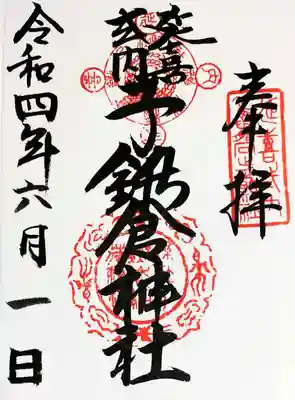 奉拝
延喜
式内
子鍬倉神社
令和四年六月一日